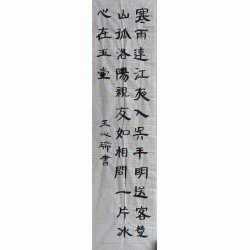 寒雨連江夜入吳平明送客楚
山孤洛陽親友如相問一片冰
心在玉壺
王心書